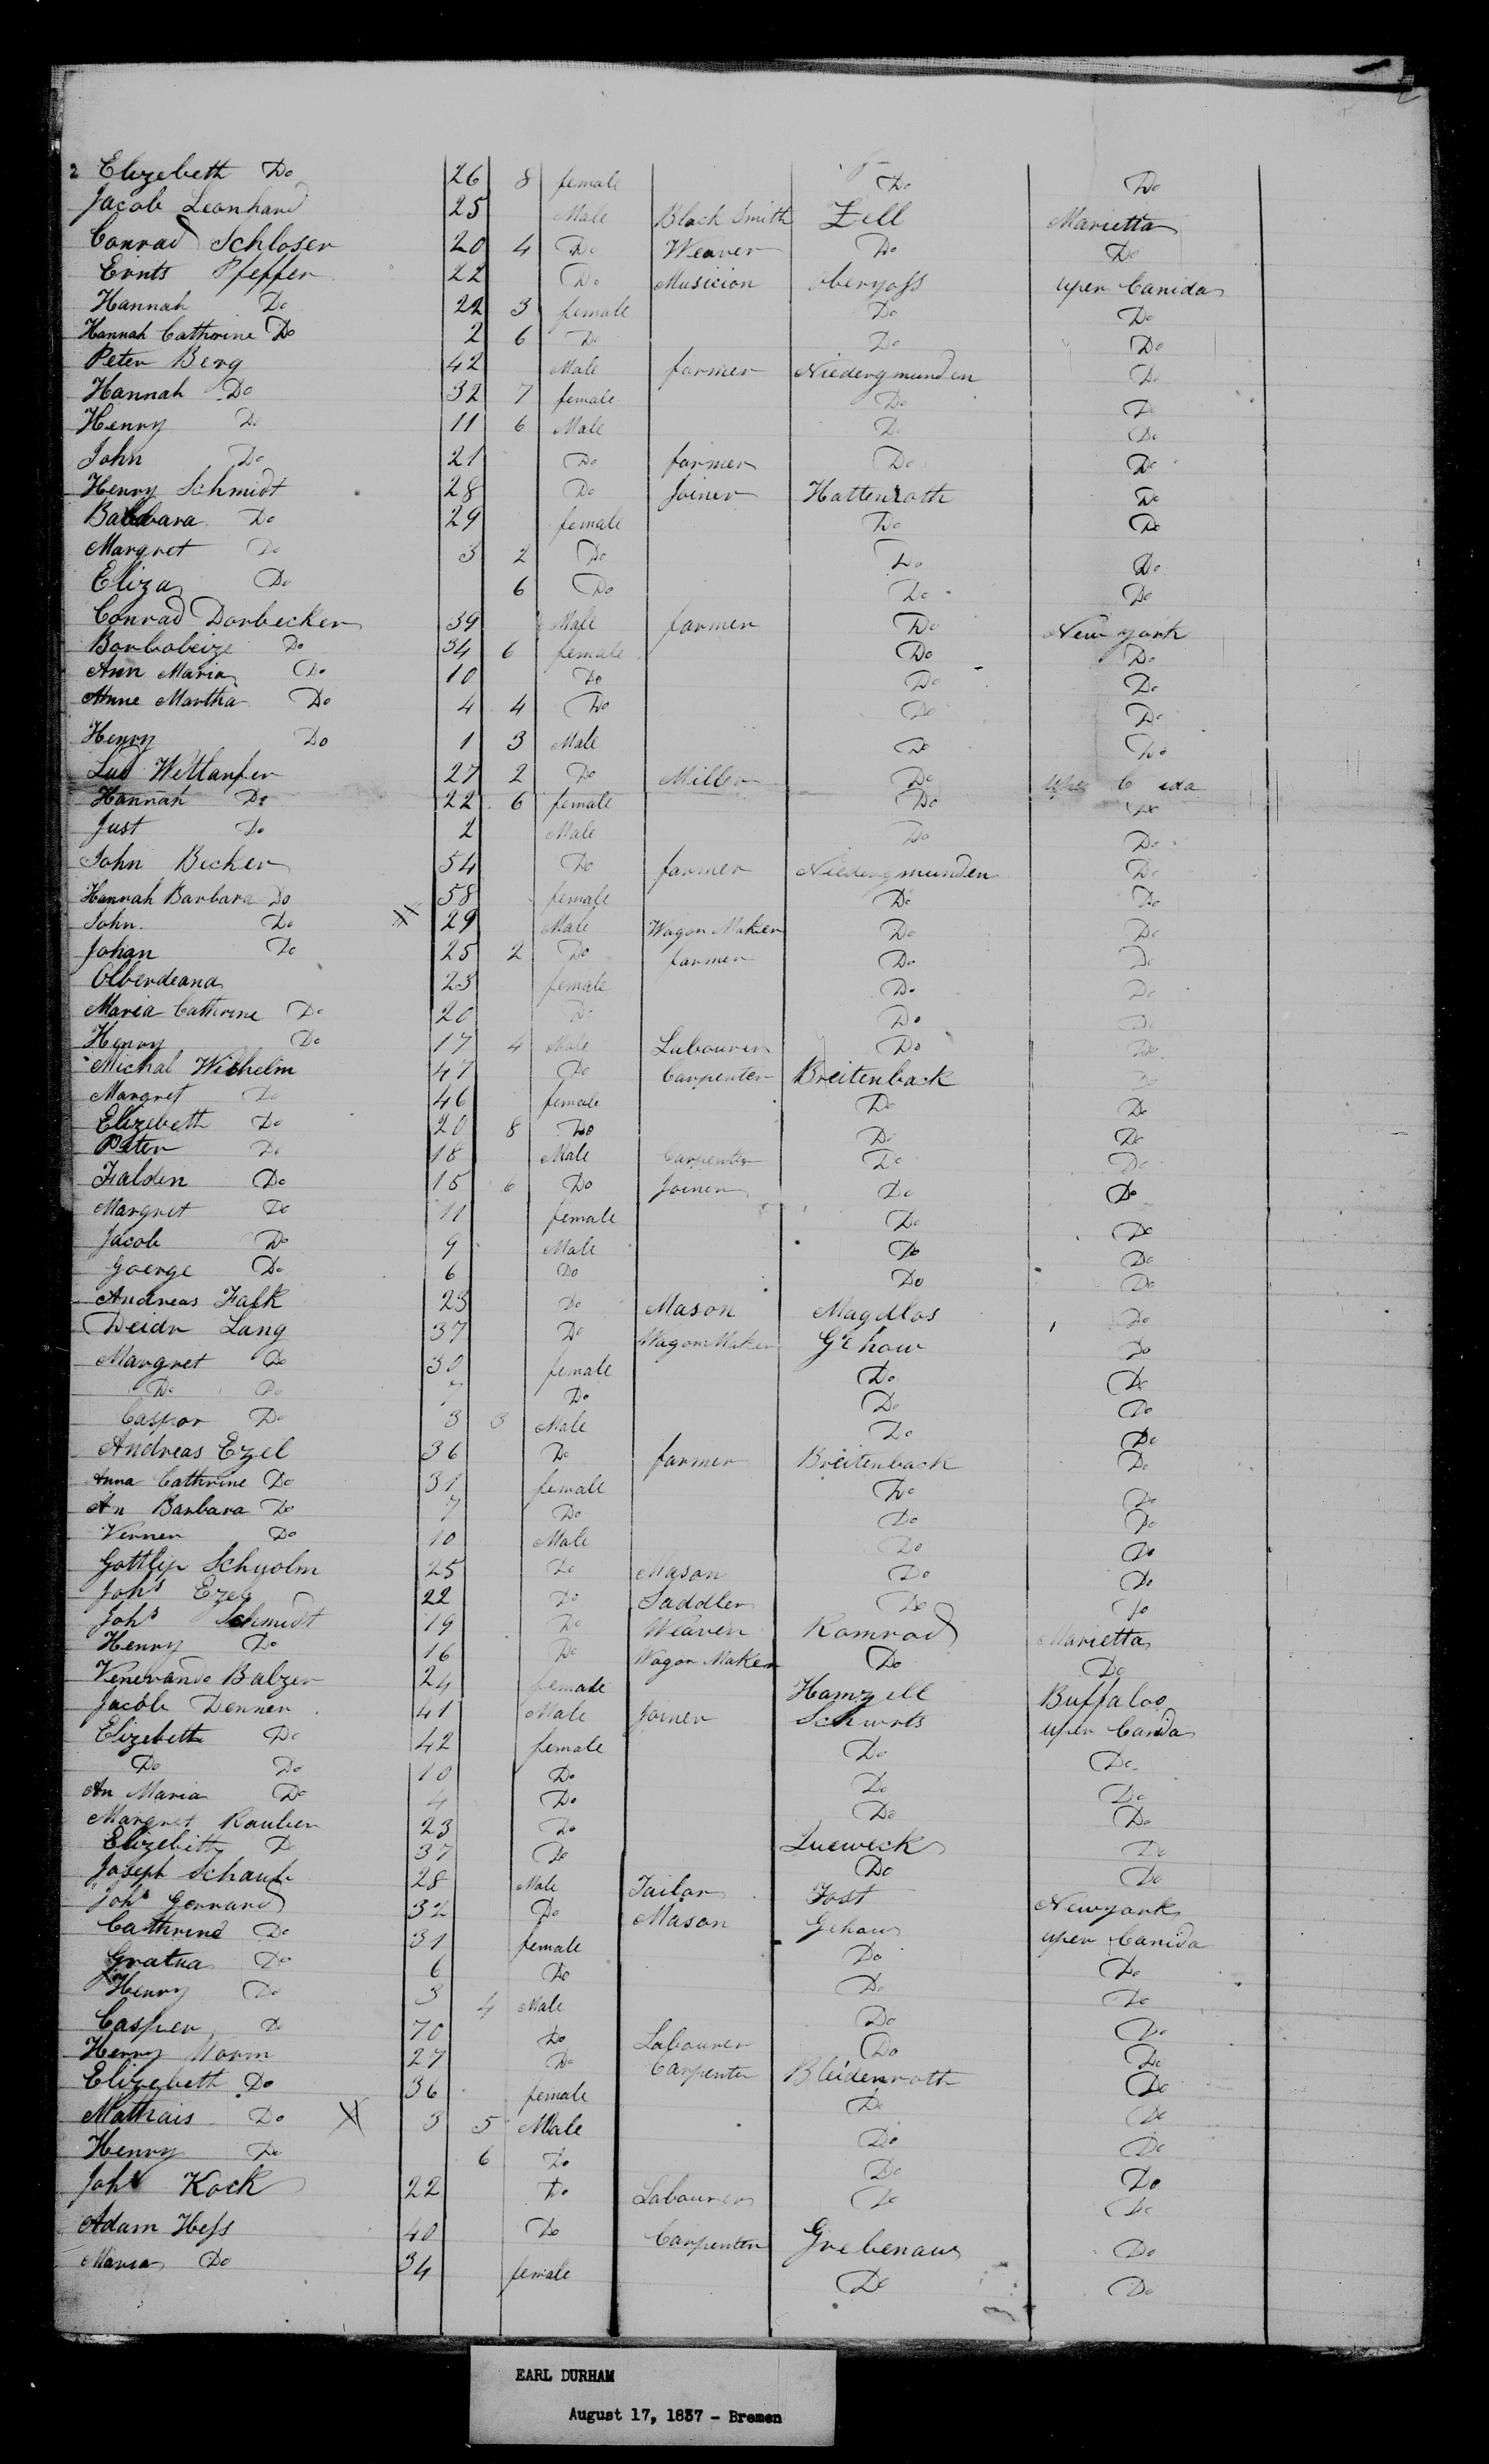 2 Elizebeth Do 26 8 female Do Do
Jacob Leonhard 25 Male Black Smith Zell Marietta
Conrad Schloser 20 4 Do Weaver Do Do
Ernts Pfeffer 22 Do Musicion Obergoss uper Canida
Hannah Do 22 3 female Do Do
Hannah Cathrine Do 2 6 Do Do Do
Peter Berg 42 Male farmer Niedergmunden Do
Hannah Do 32 7 female Do Do
Henry Do 11 6 Male Do Do
John Do 21 Do farmer Do Do
Henry Schmidt 28 Do Joiner Hattenroth Do
Babbara Do 29 female Do Do
Margret Do 3 2 Do Do Do
Eliza Do 6 Do Do Do
Conrad Dorbecker 39 Male farmer Do New york
Do 34 6 female Do Do
Ann Maria Do 10 Do Do Do
Anne Martha Do 4 4 Do Do Do
Henry Do 1 3 Male Do Do
Lud Wettlanfer 27 2 Do Miller Do uper C ida
Hannah Do 22 6 female Do Do
Just Do 2 Male Do Do
John Becker 54 Do farmer Niedergmunden Do
Hannah Barbara Do 58 female Do Do
John Do X 29 Male Wagon Maker Do Do
Johan Do 25 2 Do farmer Do Do
Olberdeana 23 female Do Do
Maria Cathrine Do 20 Do Do Do
Henry Do 17 4 Male Labourer Do Do
Michal Wilhelm 47 Do Carpenter Breitenback Do
Margret Do 46 female Do Do
Elizebeth Do 20 8 Do Do Do
Peter Do 18 Male Carpenter Do Do
Falden Do 15 6 Do Joiner Do Do
Margret Do 11 female Do Do
Jacob Do 9 Male Do Do
Goerge Do 6 Do Do Do
Andreas Falk 23 Do Mason Magdlos Do
Deidr Lang 37 Do Wagon Maker Gehow Do
Margret Do 30 female Do Do
Do Do 7 Do Do Do
Caspar Do 3 3 Male Do Do
Andreas Ezel 36 Do farmer Breitenback Do
Anna Cathrine Do 31 female Do Do
An Barbara Do 7 Do Do Do
Verner Do 10 Male Do Do
Gottlip Schyolm 25 Do Mason Do Do
Johs Ezel 22 Do Saddler Do Do
Johs Schmidt 19 Do Weaver Romrod Marietta
Henry Do 16 Do Wagon Maker Do Do
Venerando Balzer 24 female Hamzell Buffaloo
Jacob Denner 41 Male Joiner Schwrts uper Canida
Elizebeth Do 42 female Do Do
Do Do 10 Do Do Do
An Maria Do 4 Do Do Do
Margret Rauber 23 Do Lueweck Do
Elizebeth Do 37 Do Do Do
Joseph Schaub 28 Male Tailor Jost Newyork
Johs Gerrard 32 Do Mason Gehau uper Canida
Cathrine Do 31 female Do Do
Gratna Do 6 Do Do Do
Henry Do 3 4 Male Do Do
Casper Do 70 Do Labourer Do Do
Henry Morm 27 Do Carpenter Bleidenroth Do
Elizebeth Do 36 female Do Do
Mathais Do X 3 5 Male Do Do
Henry Do 6 Do Do Do
Johs Kock 22 Do Labourer Do Do
Adam Hess 40 Do Carpenter Grebenau Do
Maria Do 34 female Do Do
EARL DURHAM
August 17, 1837 - Bremen